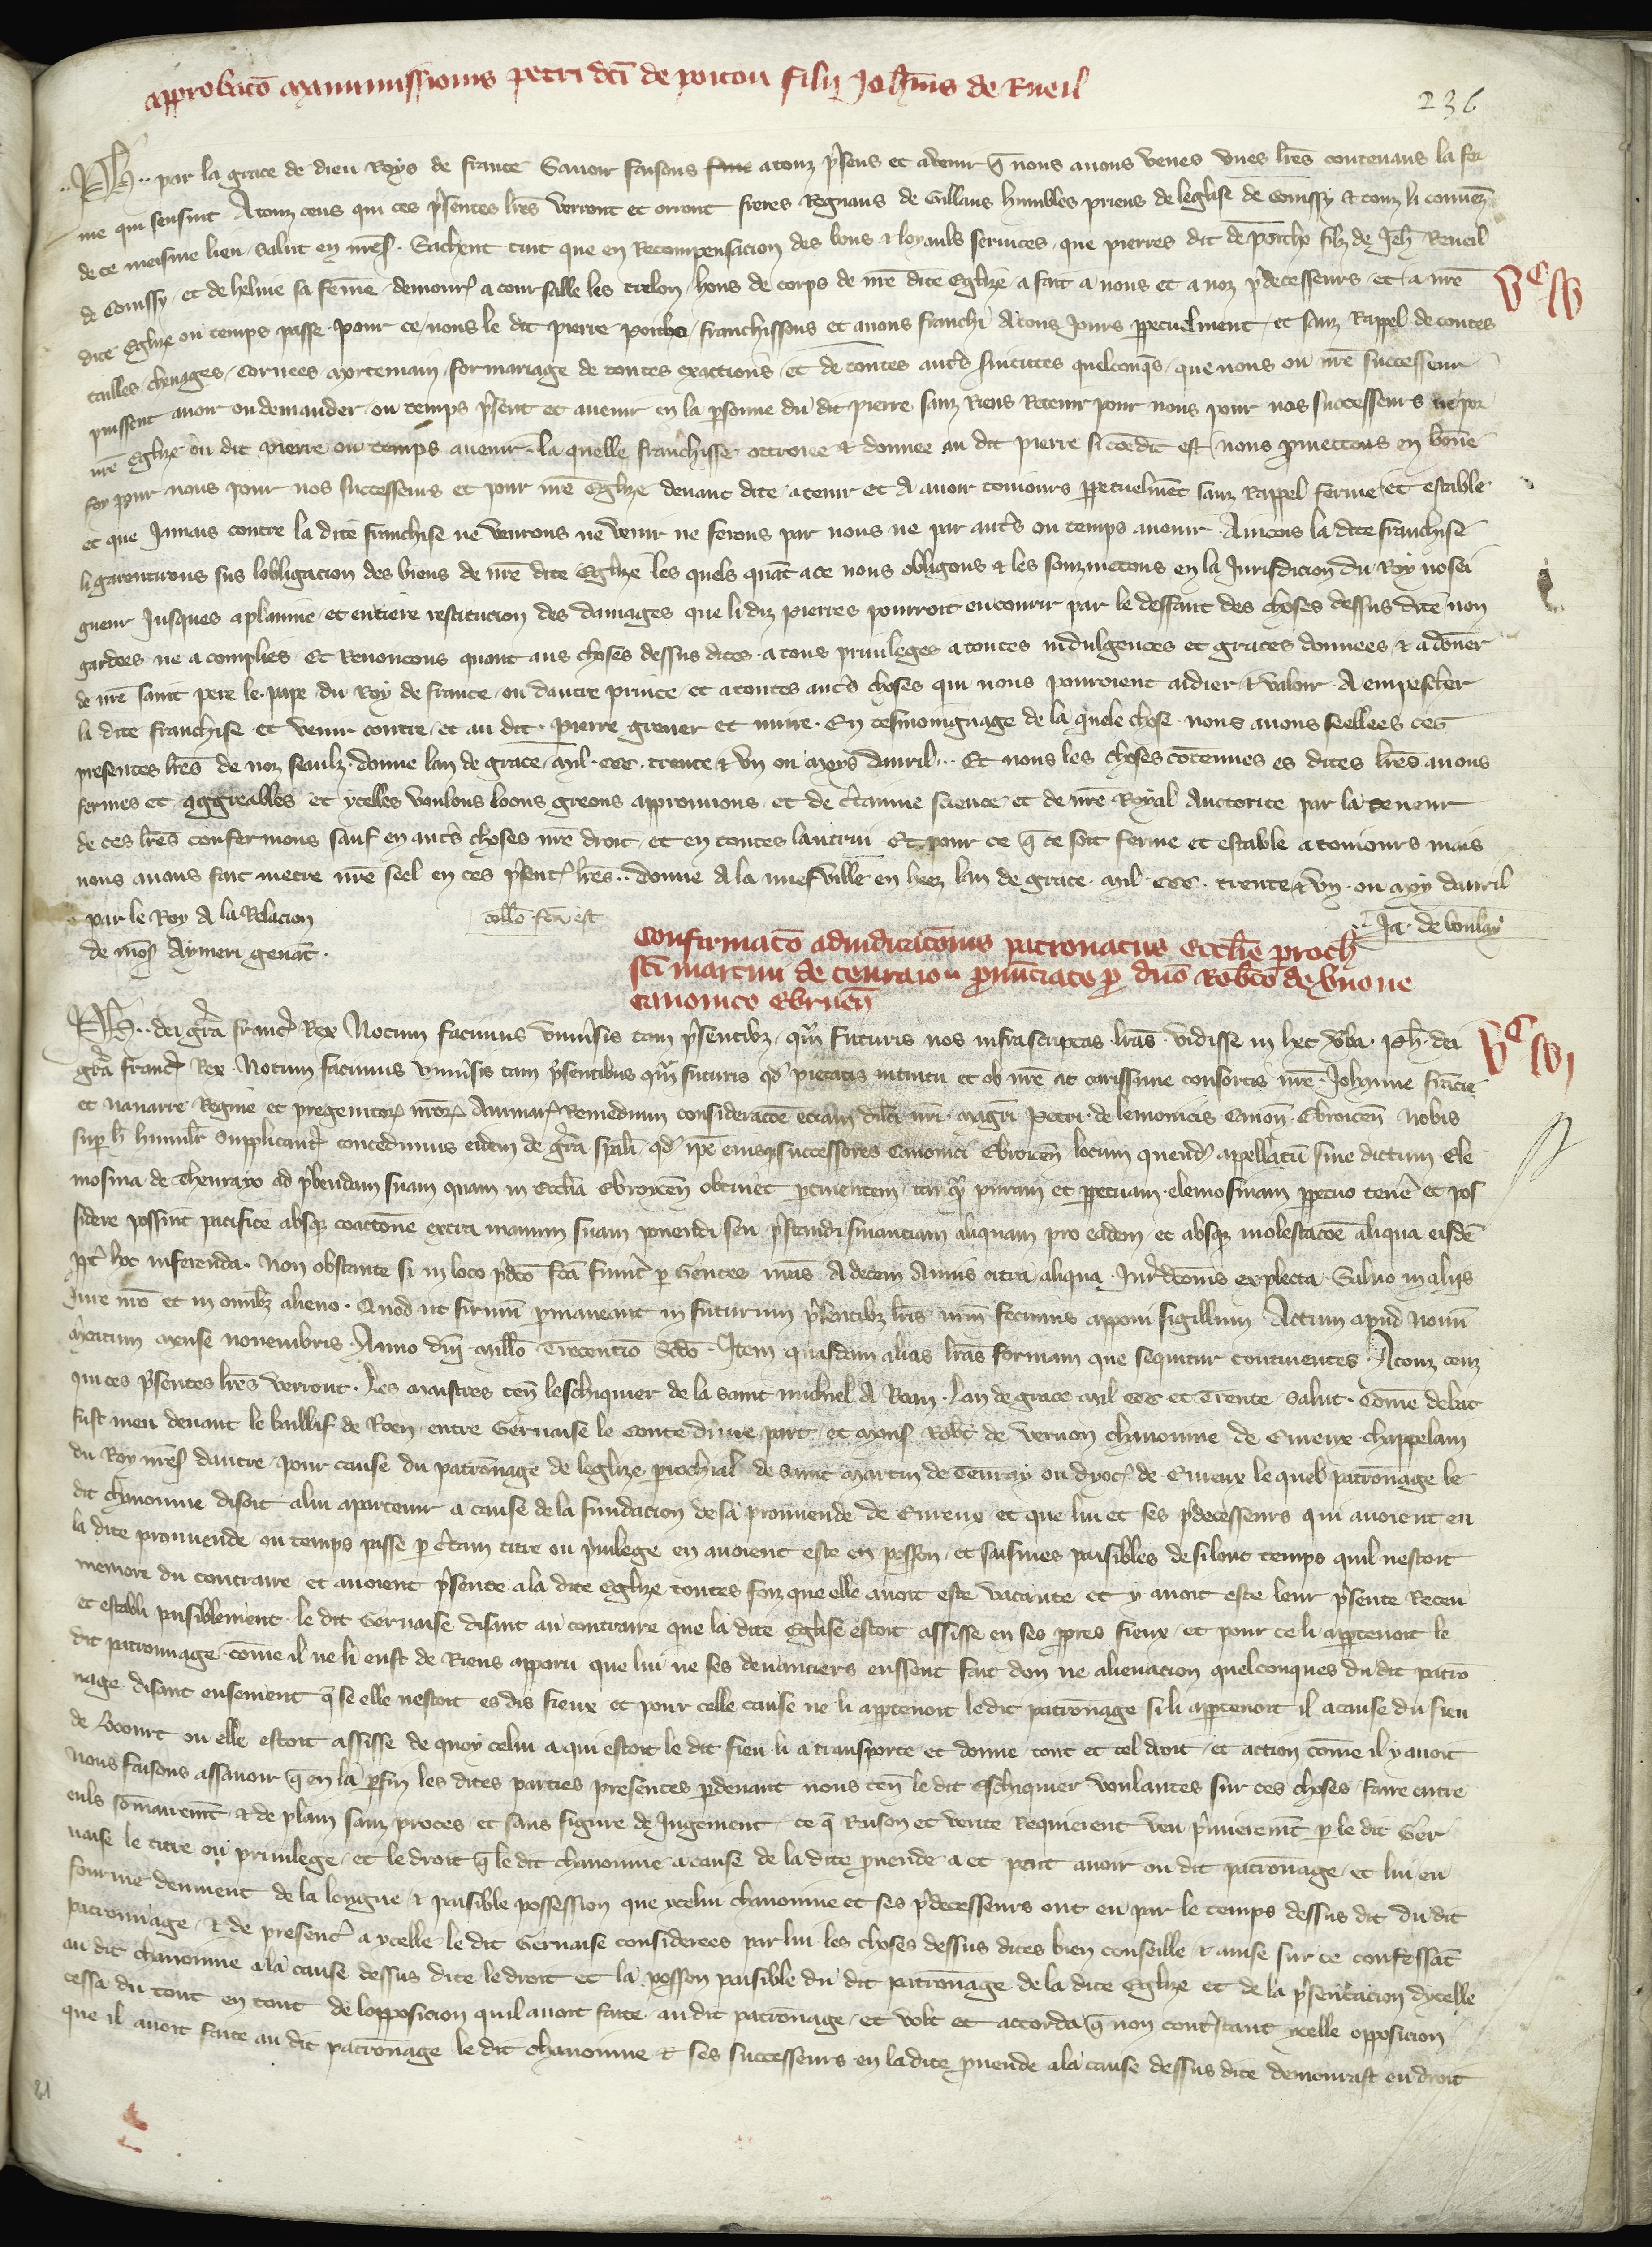 approbacõ manumissionis petri dcĩ de poitou filij Joh̃nis de Rueil
236
Ph̃.. par la grace de dieu Roys de france Sauoir faisons atouz p̃sens et auenir q̃ nous auons veues vnes lr̃es contenans la for
me qui sensuit Atouz ceus qui ces p̃sentes lr̃es verront et orront freres Regnaus de Gillans humbles priens de leglise de Conussy et touz li conuẽz
de ce meisme lieu salut en nr̃eṣ. Sachent tuit que en Recompensacion des bons et loyauls seruices que pierres dit de filz de Jeh̃ Rueil
de Conussy et de helme sa feme demour̃ a coursalle les hons de corps de nr̃e dite Eglize a fait a nous et a noz p̃decesseurs et a nr̃e
Vᶜ iiij
dite Eglize ou temps passe pour ce nous le dit pierre franchissons et auons franchi A touz Jours ppetuelment et sanz Rappel de toutes
tailles cheuages Coruees mortemain formariage de toutes exactions et de toutes aut̃s seruitutes quelconq̃s que nous ou nr̃e successeur
puissent auoir ou demander ou temps p̃sent et auenir en la psonne du dit pierre sanz Riens Retenir pour nous pour nos successeurs ne por
nr̃e Eglize ou dit pierre ou temps auenir la quelle franchisse ottroiee et donnee au dit pierre si cõe dit est nous pmettons en bone
foy pour nous pour nos successeurs et pour nr̃e Eglize deuant dite a tenir et A auoir touiours ppetuelmẽt sanz Rappel ferme et estable
et que Jamais contre la dite franchise ne venrons ne venir ne ferons par nous ne par aut̃s ou temps auenir. Aincois la dite franchise
li garentirons sus lobligacion des biens de nr̃e dite Eglize les quels quãt a ce nous obligons et les souzmetons en la Jurisdicion du Roy nosei
gneur Jusques a planine et entiere restitucion des damages que li diz pierres pourroit encourir par le deffaut des choses dessus dite non
gardees ne acomplies Et Renoncons quant aus choses dessus dites a tous priuileges a toutes indulgences et graces donnees et a doner
de nr̃e saint pere le pape du Roy de france ou dautre prince et atoutes aut̃s choses qui nous pouroient aidier et valoir A empescher
la dite franchise et venir contre et au dit pierre greuer et nuire. En tesmoingnage de la quele chose nous auons seellees ces
presentes lr̃es de noz seaulz donne lan de grace mil ccc trente et vn ou moys dauril.. Et nous les choses cõtenues es dites lr̃es auons
fermes et aggreables et ycelles voulons loons greons approuuons et de c̃tainne science et de nr̃e Royal Auctorite par la teneur
de ces lr̃es confermons sauf en aut̃s choses nr̃e droit et en toutes lautrui Et pour ce q̃ ce soit ferme et estable a touiours mais
nous auons fait metre nr̃e seel en ces p̃sent̃ lr̃es.. donne A la nuefuille en hez lan de grace mil ccc trente et vn ou moys dauril
par le Roy A la Relacion
de mõs Aymeri genat̃.
collõ fcã est
Ja. de boulay
Confirmacõ adiudicacõnis patronatus Ecclie proch̃
sc̃i martini de p̃nunciate p̃ dnõ Robtõ de
canonico Ebroicen̄
Ph̃.. dei gr̃a franc̃ Rex Notum facimus vniũsis tam p̃sentibz qm̃ futuris nos infrascriptas lr̃as vidisse in hec vba Ph̃ dei
Vᶜ iiij j
gr̃a franc̃ Rex Notum facimus vniũsis tam p̃sentibus qm̃ futuris qd̃ pietatis intuitu et ob nr̃e ac carissime consortis nr̃e Johanne francie
et nauarre Regine et pregenitor̃ nr̃or̃ Animar̃ Remedium consideracõe eciam dilcĩ nr̃i magr̃i Petri de lemouicis Canon̄ Ebroicen̄ nobis
sup h̃ humilr̃ Supplicant̃ concedimus eidem de gr̃a spãli qd̃ ip̃e eiusq̃ successores Canonici Ebroicen̄ locum quend̃ appellatũ siue dictum Ele
mosina de Thenrayo ad p̃bendam suam quam in Ecclia Ebroicen̄ obtinet ptinentem tanq̃ puram et ppetuam elemosinam ppetuo tenẽ et pos
sidere possint pacifice absq̃ coactione extra manum suam ponendi seu p̃standi financiam aliquam pro eadem et absq̃ molestacõe aliqua eisdẽ
ppt̃ hoc inferenda. Non obstante si in loco p̃dcõ fcã fuerit̃ p Gentes nr̃as A decem Annis citra aliqua Jur̃ dictõnis explecta. Saluo in alijs
Jure nr̃o et in omĩbz alieno. Quod ut firmũ pmaneant in futurum p̃sentibz lr̃is nr̃m fecimus apponi sigillum Actum apud Nouũ
mẽrtum mense nouembris Anno dñi millõ Trecentõ Scdõ. Item quasdam alias lr̃as formam que sequitur continentes. A touz ceuz
qui ces p̃sentes lr̃es verront. Les maistres ten̄ leschiquier de la saint michiel A Roan. lan de grace mil ccc et Trente salut. Come debat
fust meu deuant le baillif de Roen entre Geruaise le Conte dune part et mons̃ Robt̃ de vernon chanoinne de Eureux chappelain
du Roy nr̃eṣ dautre pour cause du patrõnage de leglize prochial̃ de saint martin de Tenray ou dyoc̃ de Eureux le quel patrõnage le
dit chanoinne disoit a lui apartenir a cause de la fundacion de sa prouuende de Eureux et que lui et ses p̃decesseurs qui auoient eu
la dite prouuende ou temps passe p c̃tam titre ou p̃uilege en auoient este en posson et saisines paisibles de si lonc temps quil nestoit
memore du contraire et auoient p̃sente a la dite Eglize toutes foiz que elle auoit este vacante et y auoit este leur p̃sente Receu
et establi paisiblement le dit Geruaise disant au contraire que la dite Eglise estoit assisse en ses ppres fieux et pour ce li apptenoit le
dit patronnage come il ne li eust de Riens apparu que lui ne ses deuanciers eussent fait don ne alienacion quelconques du dit patrõ
nage disant ensement q̃ se elle nestoit es dis fieux et pour celle cause ne li apptenoit ledit patrõnage si li apptenoit il a cause du fieu
de ou elle estoit assisse de quoy celui a qui estoit le dit fieu li a transporte et donne tout et tel droit et action come il y auoit
Nous faisons assauoir q̃ en la pfin les dites parties presentes pdeuant nous ten̄ le dit Eschiquier voulantes sur ces choses faire entre
euls somãuemt̃ et de plain sanz proces et sans figure de Jugement ce q̃ Raison et verite Requierent veu p̃mierement p le dit Ger
uaise le titre ou priuilege et le droit q̃ le dit chanoinne a cause de la dite puende a et peut auoir ou dit patrõnage et lui en
fourme deuement de la longue et paisible possession que ycelui chanoinne et ses p̃decesseurs ont eu par le temps dessus dit du dit
patronnage et de presentr̃ a ycelle le dit Geruaise considerees par lui les choses dessus dites bien conseille et auise sur ce confessat̃
au dit chanoinne a la cause dessus dite le droit et la posson paisible du dit patrõnage de la dite Eglize et de la p̃sentacion dycelle
cessa du tout en tout de lopposicion quil auoit faite au dit patrõnage et volt et accorda q̃ non cont̃stant ycelle opposicion
que il auoit faite au dit patrõnage le dit chanoinne et ses successeurs en ladite puende a la cause dessus dite demourast en droit